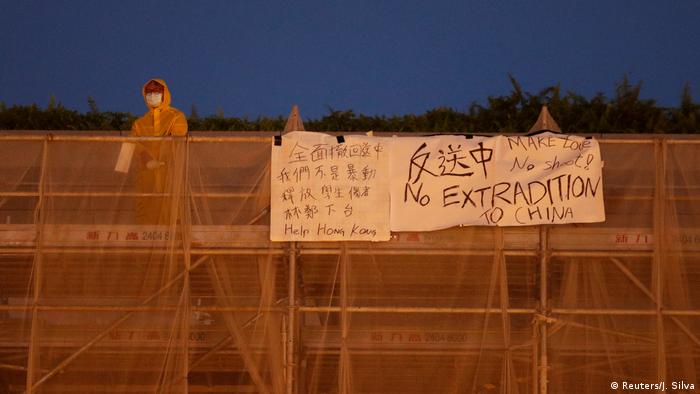 全面撤回送中
我們不是暴動
釋放學生傷者
林鄭下台
Help Hong Kong
反送中
MAKE LOVE
No shoot!
No EXTRADITION
TO CHINA
新力高 2404 8
新力
新力高 2404 8000
© Reuters/J. Silva